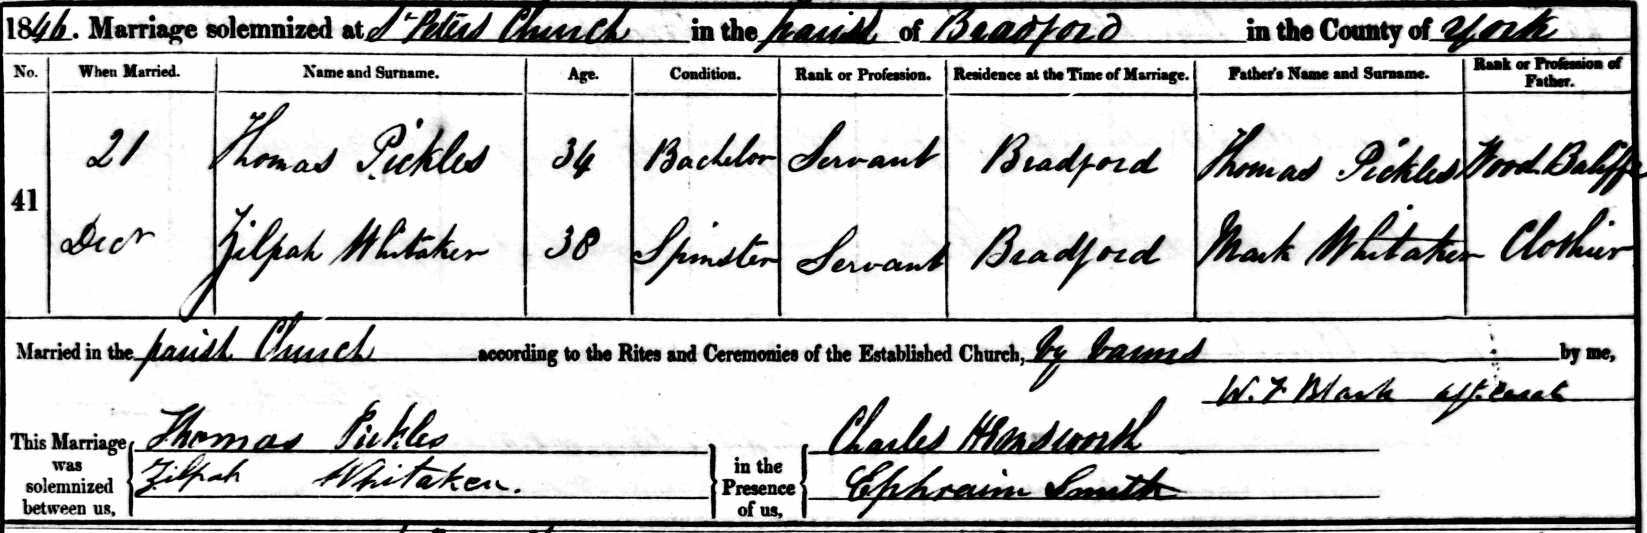 1846. Marriage solemnized at St Peters Church in the parish of Bradford in the County of York
No. When Married. Name and Surname. Age. Condition. Rank or Profession. Residence at the Time of Marriage. Father's Name and Surname. Rank or Profession of Father.
21 Thomas Pickles 34 Bachelor Servant Bradford Thomas Pickles Wood Baliffe
41
Decr Zilpah Whitaker 38 Spinster Servant Bradford Mark Whitaker Clothier
Married in the parish Church according to the Rites and Ceremonies of the Established Church, by banns by me,
W. F Black
This Marriage was solemnized between us, Thomas Pickles in the Presence of us, Charles Hemsworth
Zilpah Whitaker. Ephraim Smith